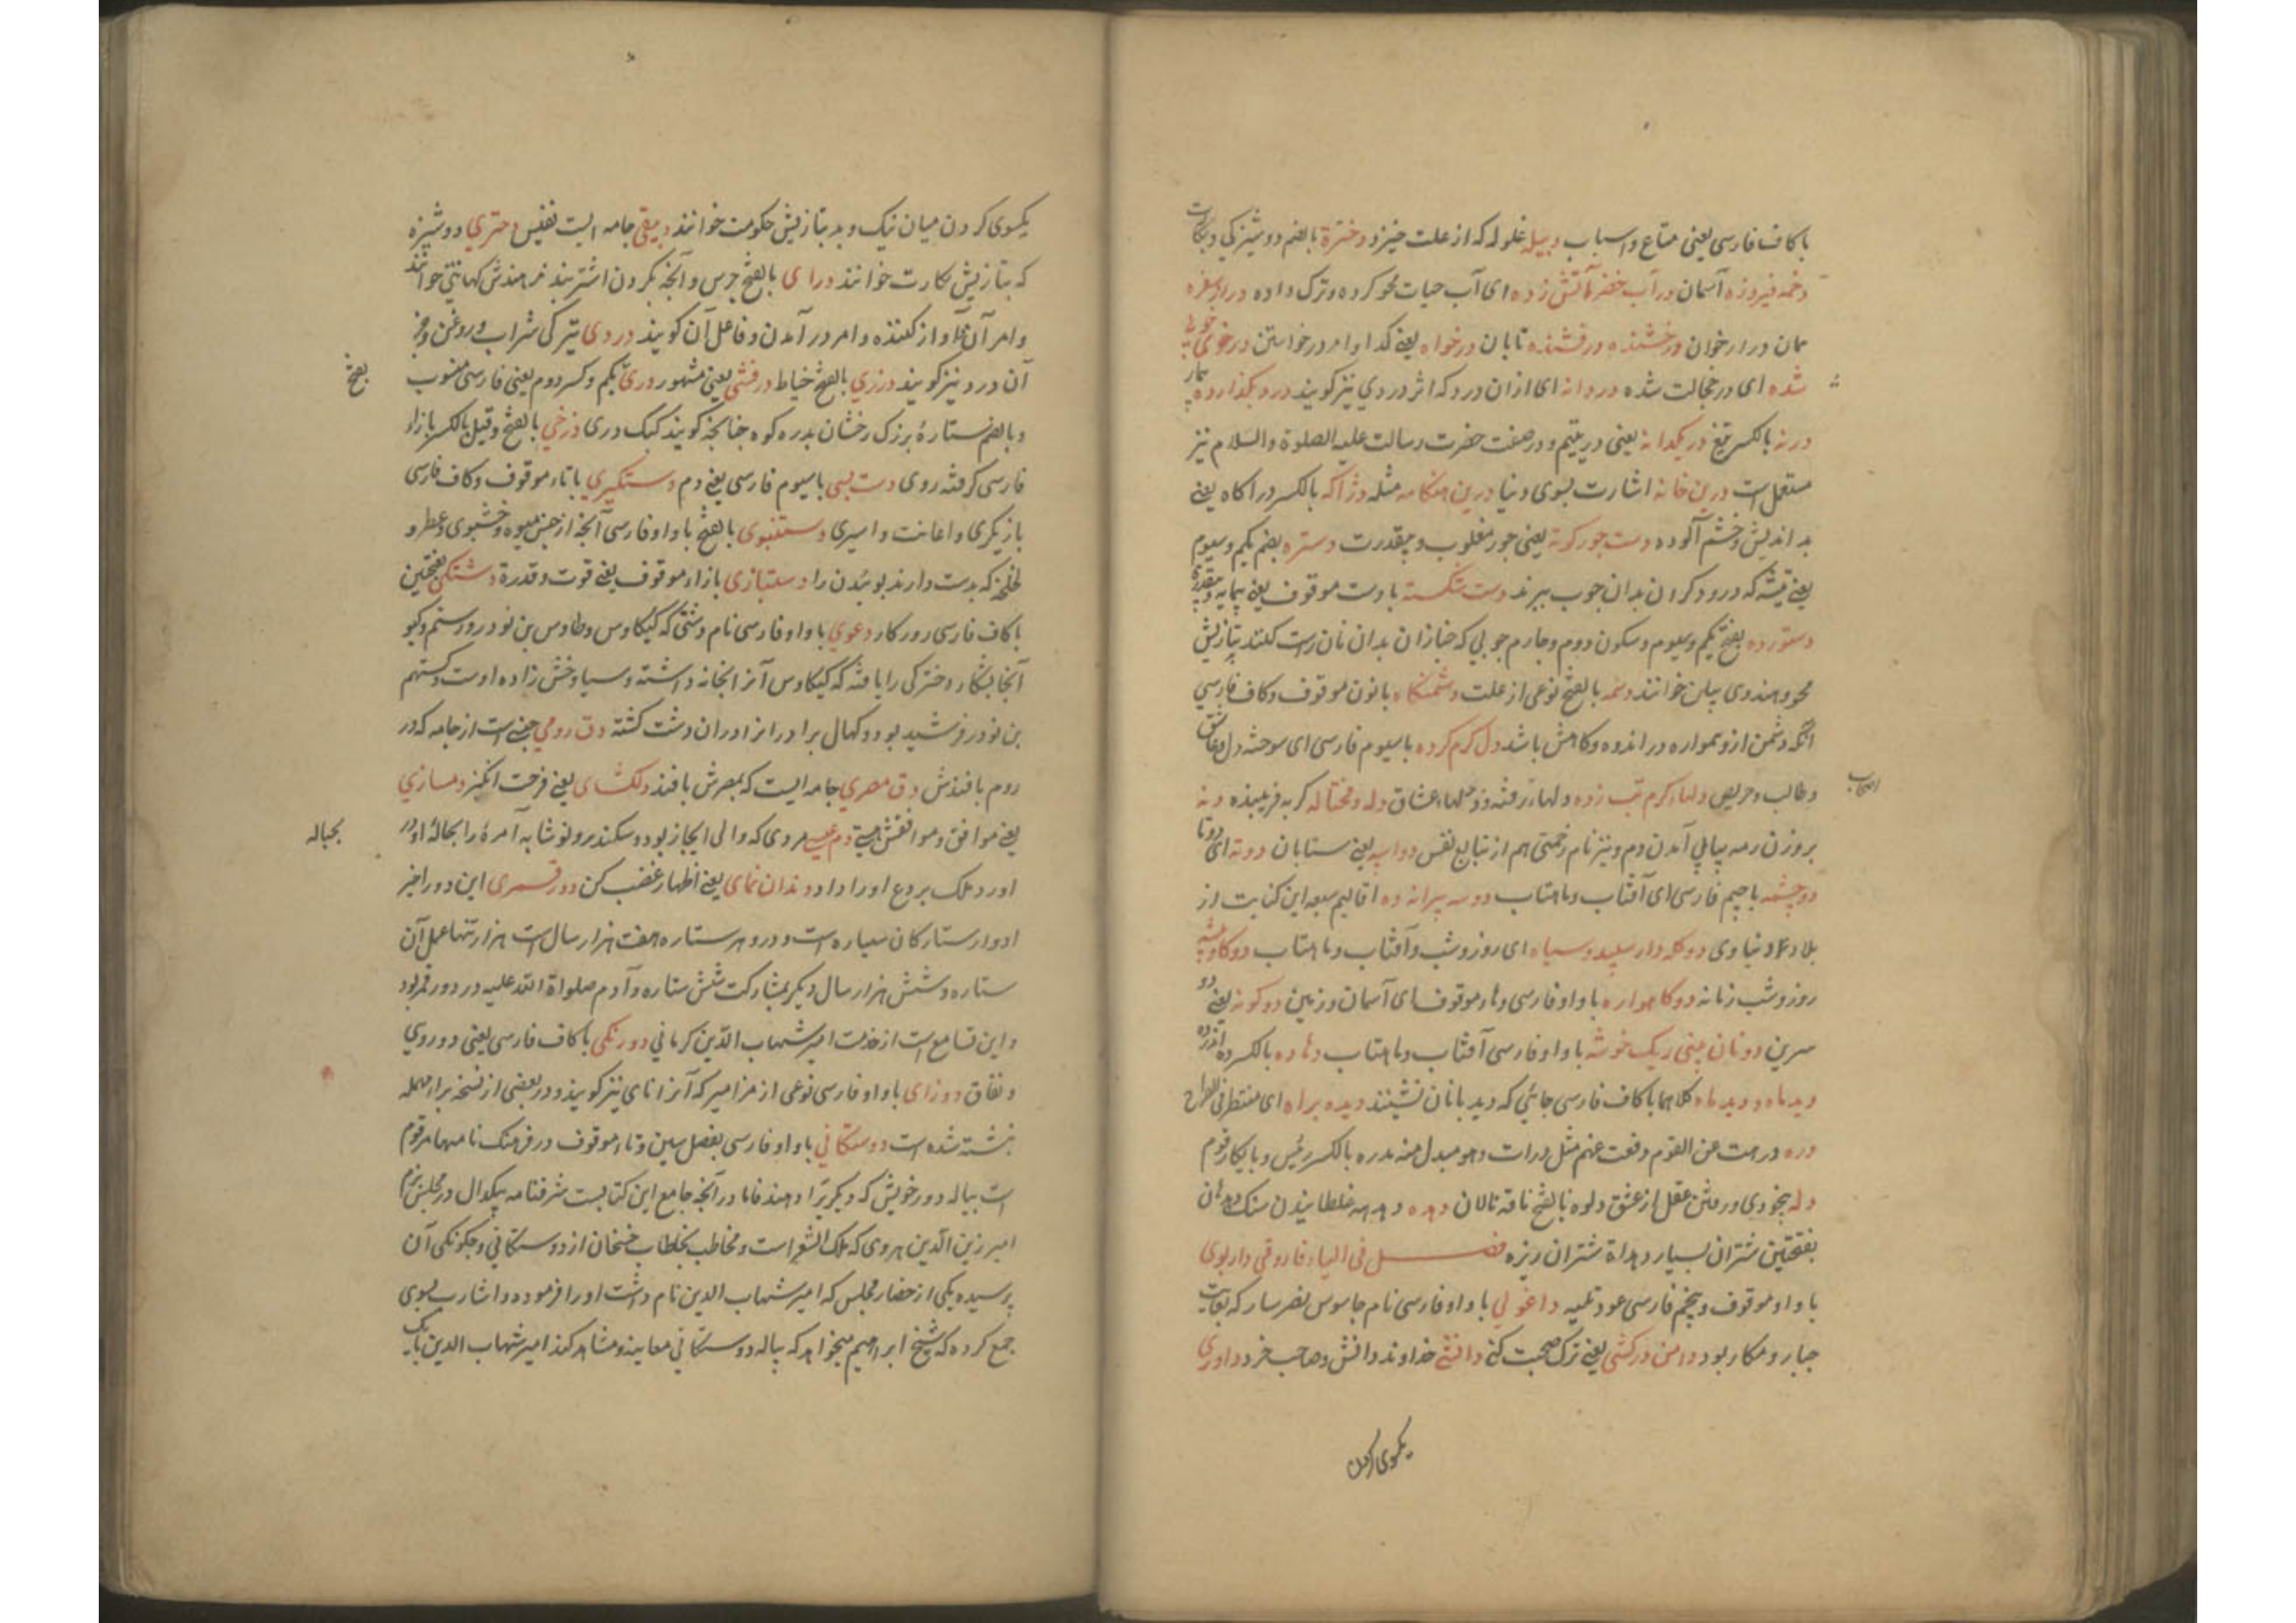 با کاف فارسی یعنی متاع و اسباب دبیله غلوله که از علت خیزد دخترة بالضم دوشیزگی و بکارت
دخمه فیروزه آسمان در آب خضر آتش زده ای آب حیات محو کرده و ترک داده دراز سفره
سمان درار خوان درخشنده درفشنده تابان درخواه یعنی گدا و امر درخواستن در خوی
شده ای در خجالت شده دردانه ای ازان درد که اثر دردی نیز گویند درد بگذارده
درنه بالکسر تیغ در یکدانه یعنی در یتیم و در صفت حضرت رسالت علیه الصلوة والسلام نیز
مستعمل است درین خانه اشارت بسوی دنیا درین هنکامه مثله دژاکه بالکسر دراکاه یعنی
بد اندیش و خشم آلوده دست جور کوته یعنی جور مغلوب و بیقدرت دستره بضم یکم و سیوم
یعنی تیشه که درودکران بدان چوب ببرند دست شکسته با دست موقوف یعنی بیمایه و بیقدرت
دستورده بفتح یکم و سیوم و سکون دوم و چارم چوبی که خبازان بدان نان راست کنند بتازیش
محور و هندوی بیلن خوانند دشمه بالفتح نوعی از علت دشمنکاه با نون موقوف و کاف فارسی
انکه دشمن ازو همواره در اندوه و کاهش باشد دل کرم کرده با سیوم فارسی ای سوخته دل و عاشق
و طالب و حریص دلهاء کرم تب زده دلهاء تفته و دلهاء عشاق دله و محتاله کربه فریبنده دنه
اصحاب
بروزن رمه پیاپی آمدن دم و نیز نام زحمتی هم از تتابع نفس دو اسپه یعنی شتابان دوته ای دوتا
دو چشمه با جیم فارسی ای آفتاب و ماهتاب دو سه پیرانه ده اقالیم سبعه این کنایت از
بلاد دنیاوی دو کله دار سپید و سیاه ای روز و شب و آفتاب و ماهتاب دو کاو پیسه
روز و شب زمانه دو کاهواره با واو فارسی و هاء موقوف ای آسمان و زمین دو کونه یعنی دو
سرین دو نان بینی زیک خوشه با واو فارسی آفتاب و ماهتاب دهاده بالکسر ده اندر ده
دیدگاه و دیدهگاه کلاهما با کاف فارسی جائی که دیدبانان نشینند دیده براه ای منتظر
دره درهت عن القوم دفعت عنهم مثل درات و هو مبدل منه مدره بالکسر رئیس و پایکار قوم
دله بیخودی و رفتن عقل از عشق دلوه بالفتح ناقه تالان دهده دهدهه غلطانیدن سنک دهدهان
بفتحتین شتران بسیار دهداة شتران ریزه فصل فی الیاء فاروقی داربوی
با واو موقوف و پنجم فارسی عود قلمیه داغولی با واو فارسی نام جاسوس نصر سار که بغایت
جبار و مکار بود دامن درکشی یعنی ترک صحبت کنی دانشی خداوند دانش و صاحب خرد داوری
یکسوی کردن
یکسوی کردن میان نیک و بد بتازیش حکومت خوانند دبیقی جامه ایست نفیس دختری دوشیزه
که بتازیش بکارت خوانند درای بالفتح جرس و آنچه بکردن اشتر بندند هندش کهانتی خوانند
و امر آن و آواز کننده و امر درآمدن و فاعل آن گویند دردی تیرکی شراب و روغن و جز
آن درد نیز گویند درزی بالفتح خیاط درفشی یعنی مشهور دری بیکم و کسر دوم یعنی فارسی منسوب
بفتح
و بالضم ستاره بزرک رخشان بدره کوه چنانچه گویند کبک دری دزخی بالفتح و قیل بالکسر بازاء
فارسی گرفته روی دست پسی با سیوم فارسی یعنی دم دستگیری با تاء موقوف و کاف فارسی
بازیکری و اعانت و اسیری دستنبوی بالفتح با واو فارسی آنچه از جنس میوه و خشبوی و عطر و
لخلخه که بدست دارند بوئیدن را دستیازی بازاء موقوف یعنی قوت و قدرة دشتکی بفتحتین
با کاف فارسی روزکار دغوی با واو فارسی نام دشتی که کیکاوس و طاوس بن نوذر و رستم و گیو
آنجا بشکار دخترکی را یافته که کیکاوس آنرا بخانه داشته و سیاوخش زاده اوست و کستهم
بن نوذر فرشید بود و کهال برادرانرا دران دشت کشته دق رومی جنسی است از جامه که در
روم بافندش دق مصری جامه ایست که بمصرش بافند دلکشای یعنی فرحت انگیز دمسازی
یعنی موافق و موافقش هستی دم عیسی مردی که والی ایجاز بود و سکندر و نوشابه آمره را بحباله او در
بحباله
آورد ملک بردع اورا داد دندان نمای یعنی اظهار غضب کن دور قمری این دور اخیر
ادوار ستارکان سیاره است و دور هر ستاره هفت هزار سال است هزار تنها عمل آن
ستاره و شش هزار سال دیگر بمشارکت شش ستاره و آدم صلواة الله علیه در دور قمر بود
و این تسامع است از خدمت امیر شهاب الدین کرمانی دورنکی با کاف فارسی یعنی دو روی
و نفاق دوزای با واو فارسی نوعی از مزامیر که آنرا نای نیز گویند و در بعضی از نسخه براء مهمله
نبشته شده است دوستکانی با واو فارسی بفصل سین و تاء موقوف در فرهنک نامهها مرقوم
است پیاله دور خویش که دیکریرا دهند فاما در آنچه جامع این کتابست شرفنامه یکدال در مجلس بزم
امیر زین الدین هروی که ملک الشعراست و مخاطب بخطاب خنخان از دوستکانی و چکونکی آن
پرسیده یکی از حضار مجلس که امیر شهاب الدین نام داشت اورا فرموده و اشارت بسوی
جمع کرده که شیخ ابراهیم میخواهد که پیاله دوستکانی معاینه و مشاهد کند امیر شهاب الدین با یک